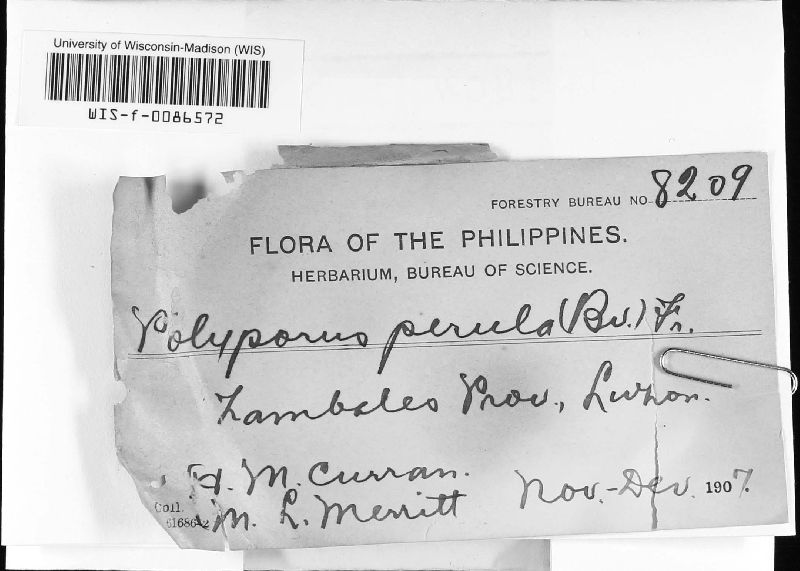 University of Wisconsin-Madison (WIS)
WIS-f-0086572
FORESTRY BUREAU NO. 8209
FLORA OF THE PHILIPPINES.
HERBARIUM, BUREAU OF SCIENCE.
Polyporus perula (Bv.) Fr.
Zambales Prov., Luzon.
H. M. Curran.
Coll. M. L. Merritt Nov.-Dec. 1907.
61686-2